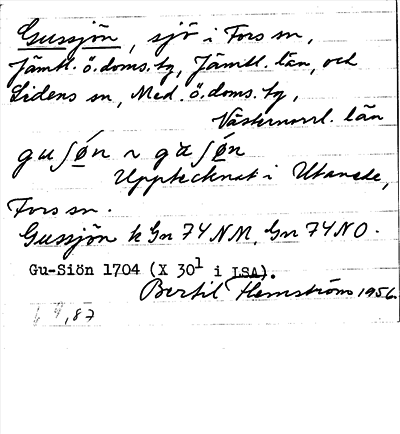 Gussjön, sjö i Fors sn,
Jämtl. ö. doms. tg, Jämtl. län, och
Lidens sn, Med. ö. doms. tg,
Västernorrl. län
guʃø̀n ~ gɯ̀ʃø̀n
Upptecknat i Utanede,
Fors sn.
Gussjön k Gn 74 NM, Gn 74 NO.
Gu-Siön 1704 (X 30¹ i LSA).
Bertil Hemström 1956.
87